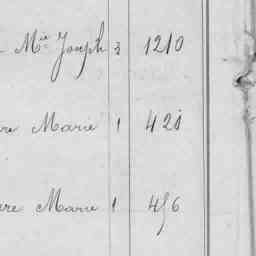 Mie Joseph 2 1210
re Marie 1 420
re Marie 1 456